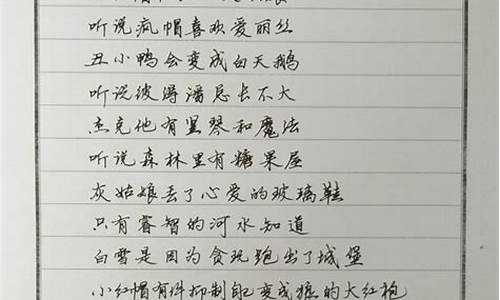 听说疯帽喜欢爱丽丝
丑小鸭会变成白天鹅
听说彼得潘总长不大
杰克他有竖琴和魔法
听说森林里有糖果屋
灰姑娘丢了心爱的玻璃鞋
只有睿智的河水知道
白雪是因为贪玩跑出了城堡
小红帽有件抑制自己变成狼的大红袍